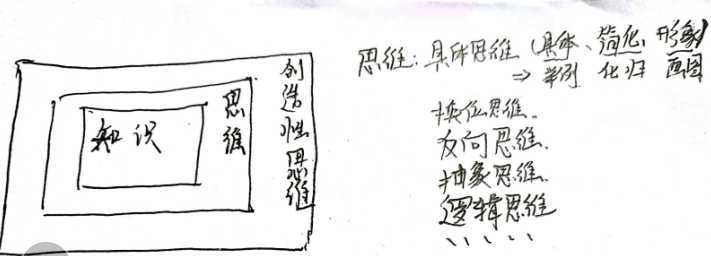 知识
思维
创造性思维
思维：具体思维（具体、简化、形象）
⇒ 举例 化归 画图
换位思维、
反向思维、
抽象思维、
逻辑思维
、、、、、